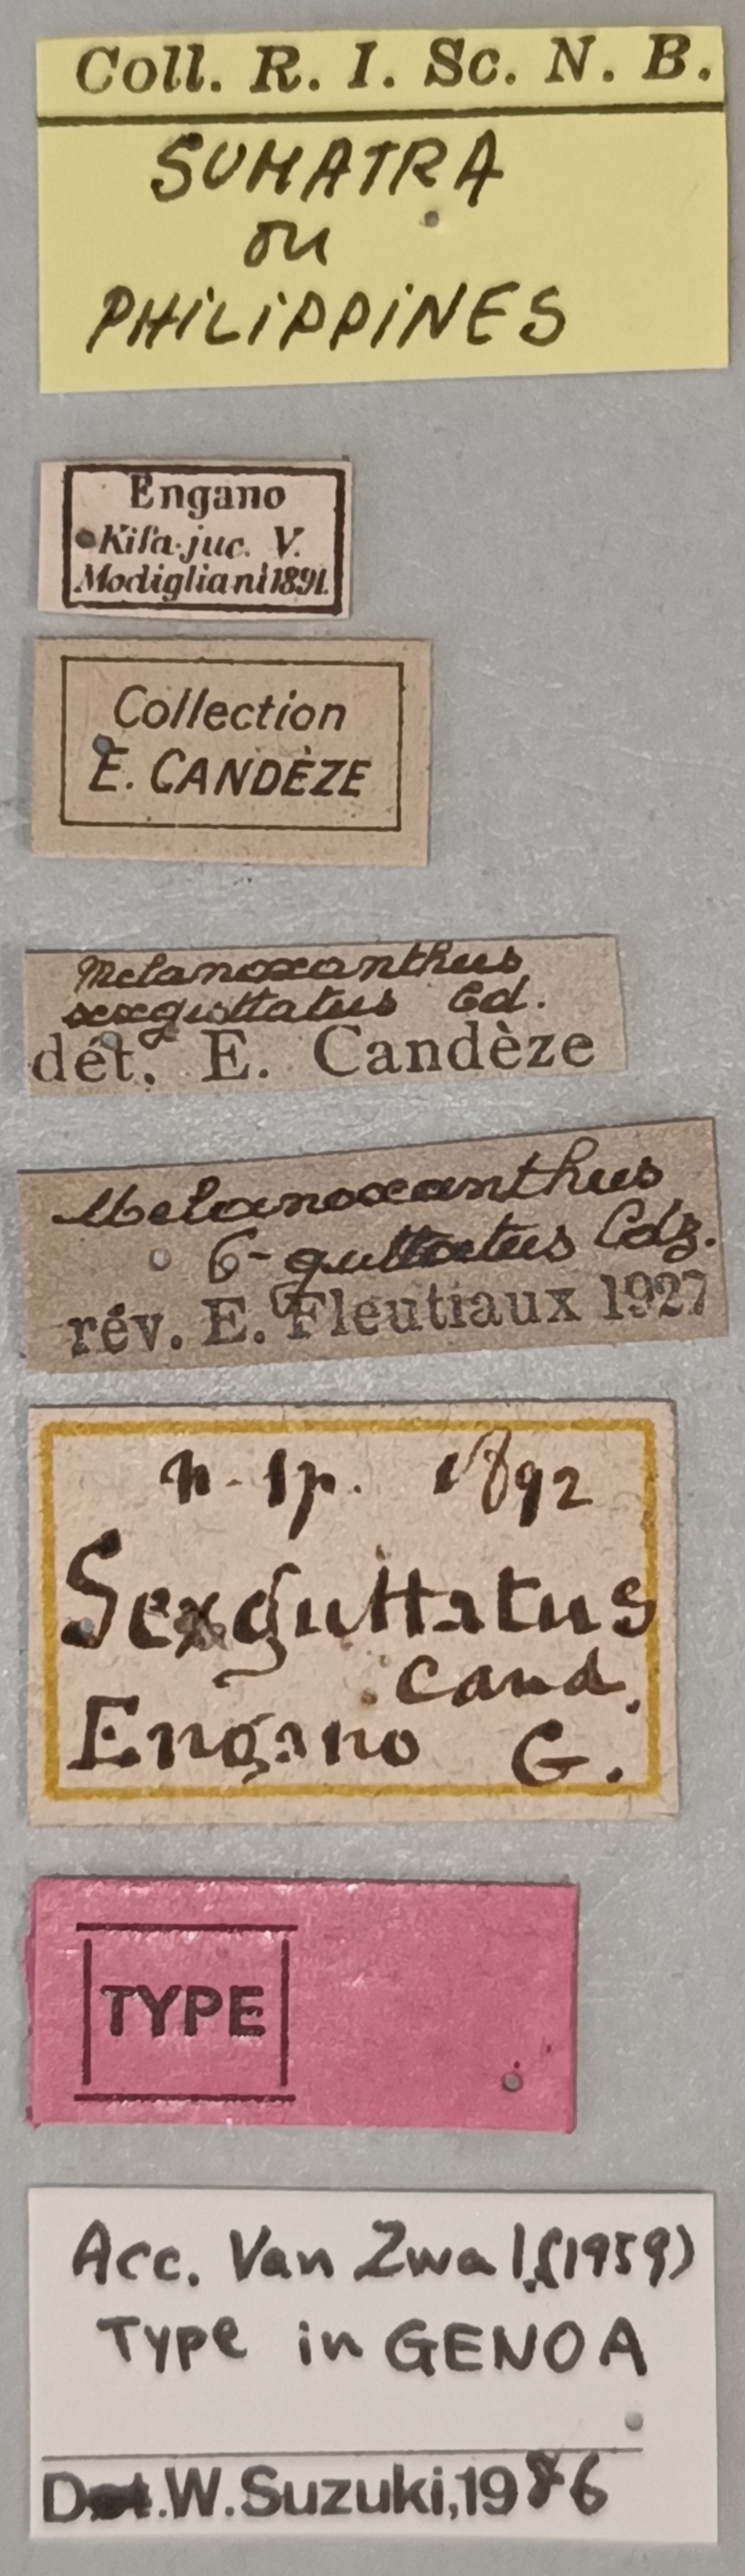 Coll. R. I. Sc. N. B.
SUMATRA
ou
PHiLiPPiNES
Engano
Kifa-juc. V.
Modigliani 1891.
Collection
E. CANDÈZE
Melanoxanthus
sexguttatus Cd.
dét. E. Candèze
Melanoxanthus
6-guttatus Cdz.
rév. E. Fleutiaux 1927
n. sp. 1892
Sexguttatus
Cand.
Engano G.
TYPE
Acc. Van Zwal. (1959)
Type in GENOA
Det. W. Suzuki, 1986